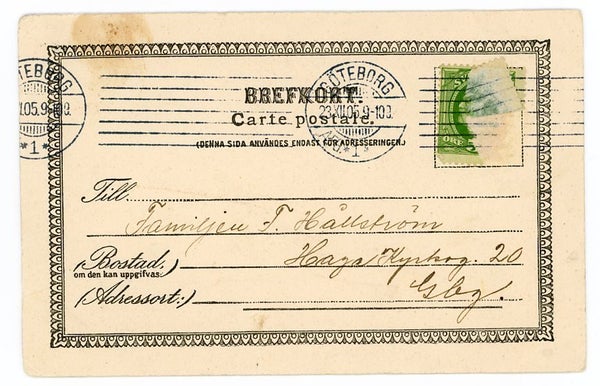 GÖTEBORG
.05.9-10F.
*1*
GÖTEBORG
23.XII.05.9-10F.
*1*
BREFKORT.
Carte postale.
(DENNA SIDA ANVÄNDES ENDAST FÖR ADRESSERINGEN.)
5
ÖRE
Till
Familjen F. Hällström
(Bostad,)
om den kan uppgifvas:
Haga Kyrkog. 20
(Adressort:)
Gbg.